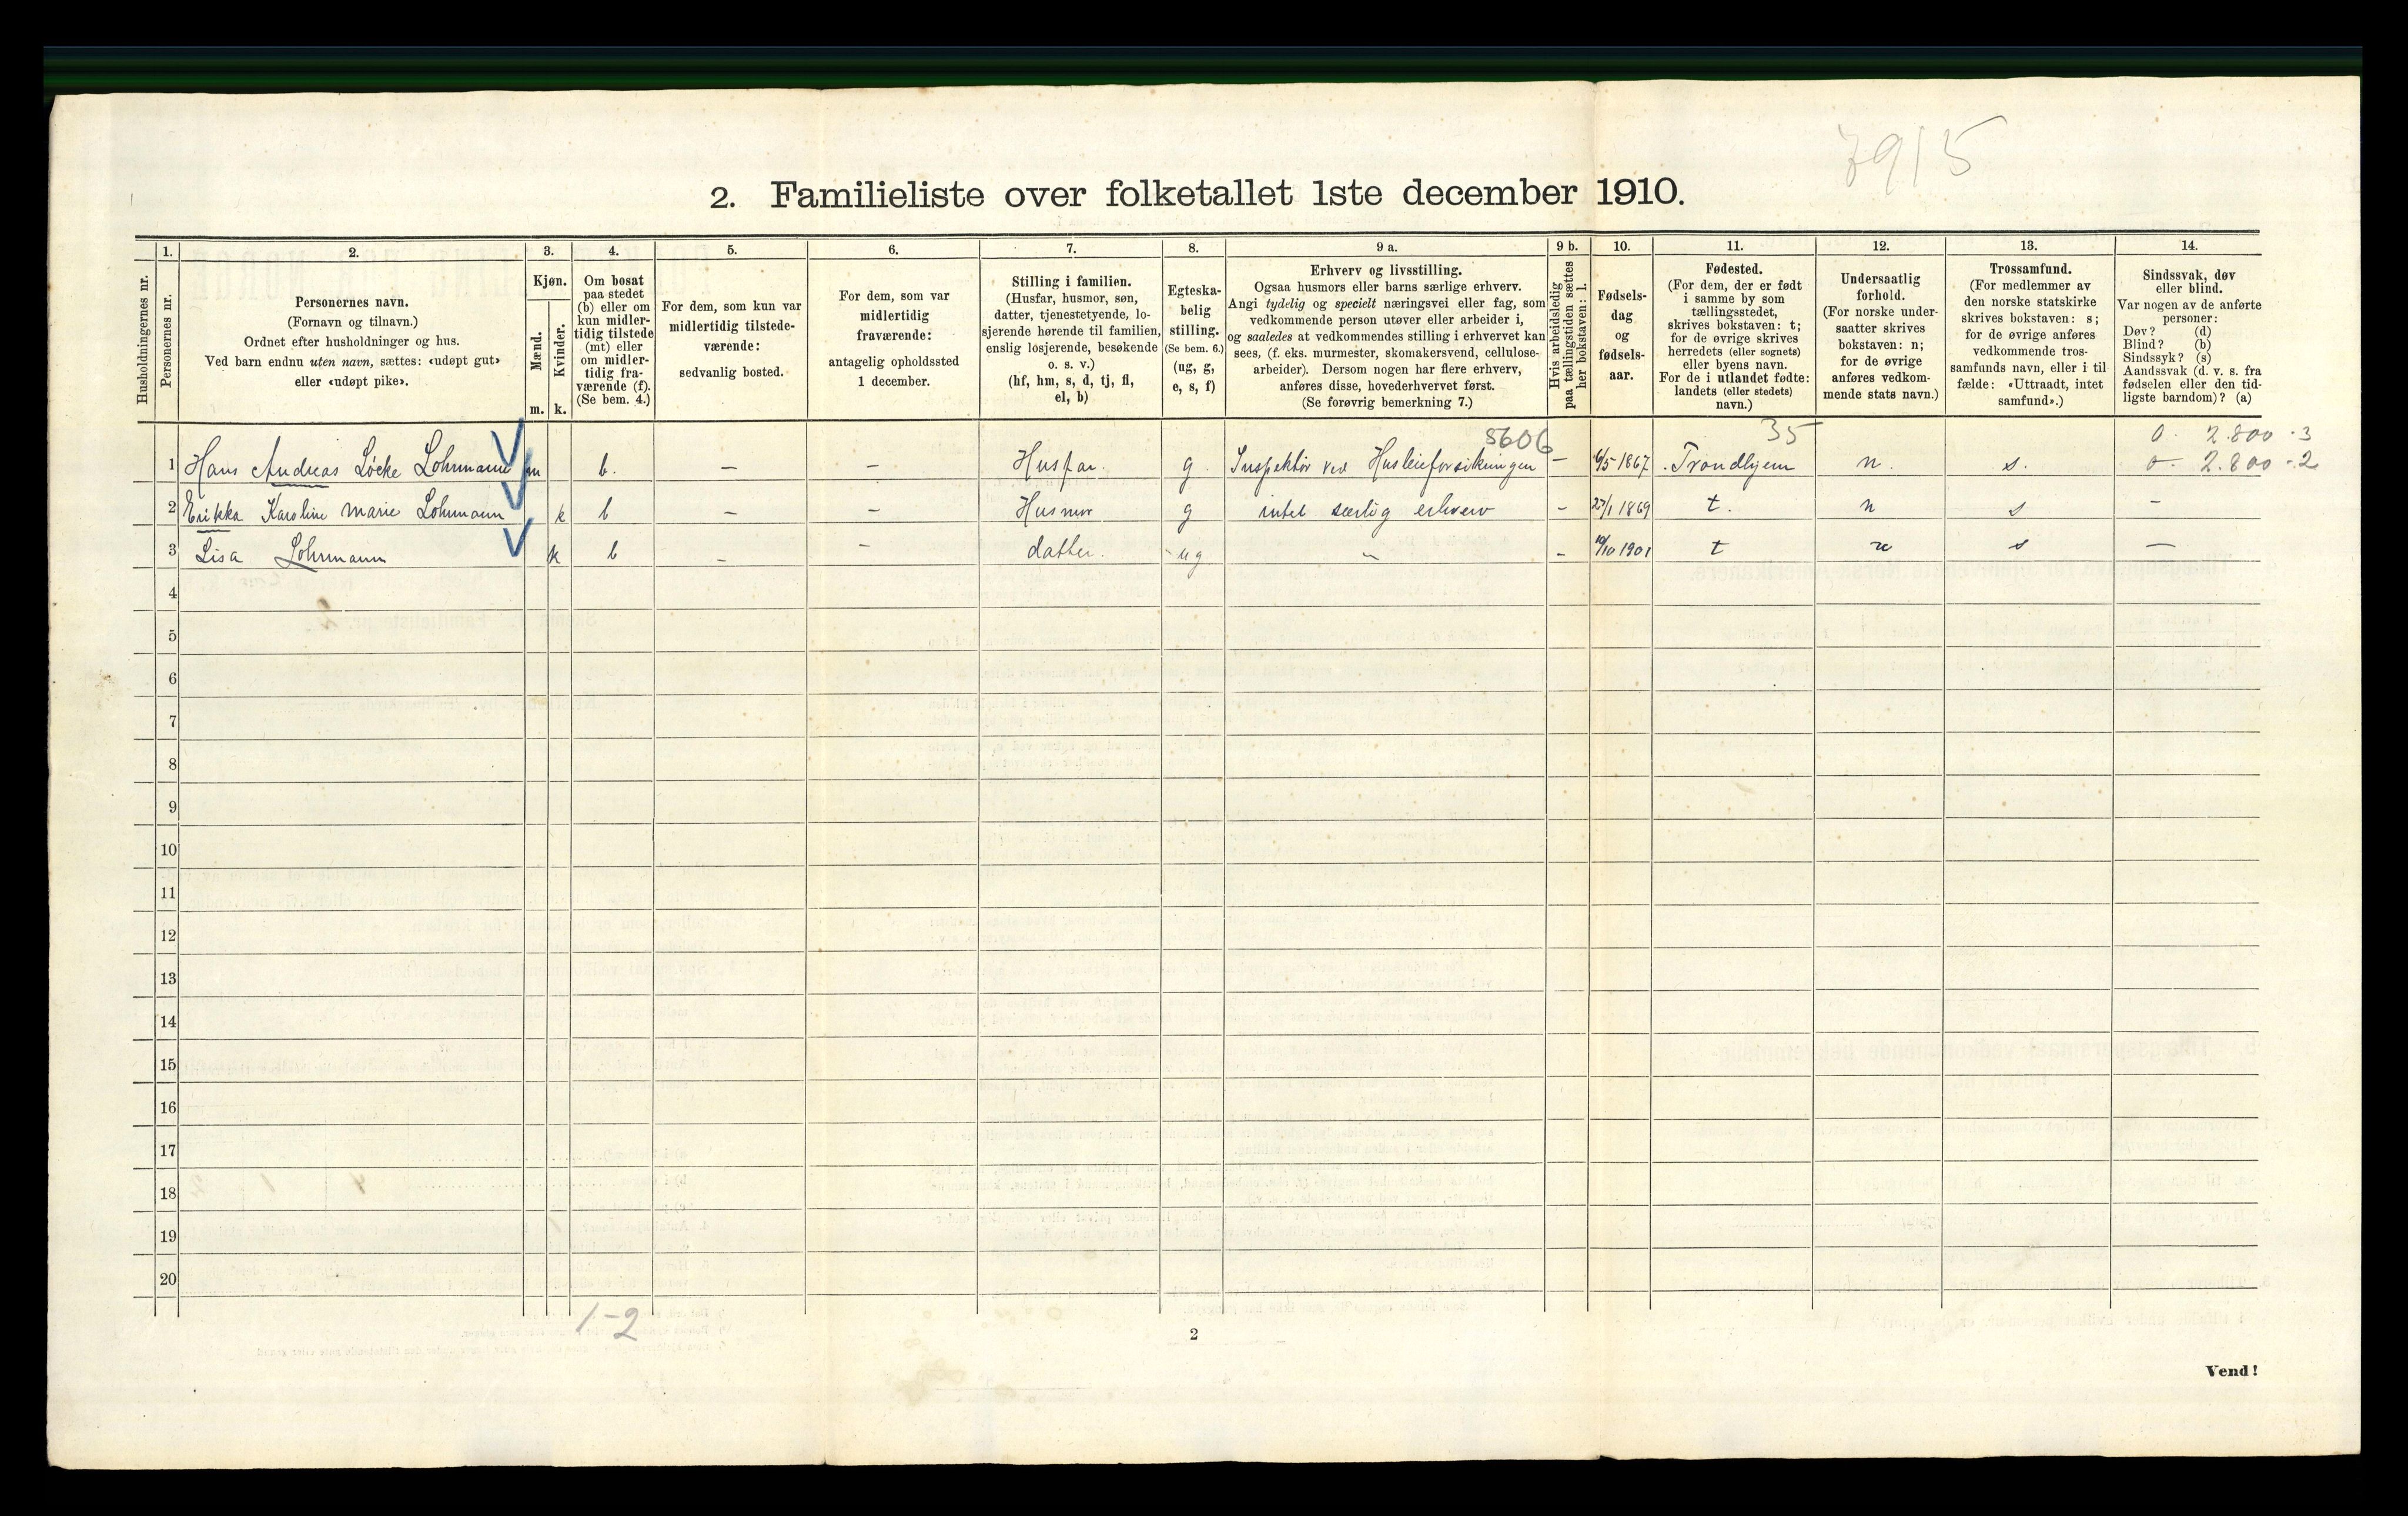 7915
2. Familieliste over folketallet 1ste december 1910.
Husholdningernes nr.
1.
Personernes nr.
2.
Personernes navn.
(Fornavn og tilnavn.)
Ordnet efter husholdninger og hus.
Ved barn endnu uten navn, sættes: «udøpt gut»
eller «udøpt pike».
3.
Kjøn.
Mænd.
Kvinder.
m. k.
4.
Om bosat
paa stedet
(b) eller om
kun midler-
tidig tilstede
(mt) eller
om midler-
tidig fra-
værende (f).
(Se bem. 4.)
5.
For dem, som kun var
midlertidig tilstede-
værende:
sedvanlig bosted.
6.
For dem, som var
midlertidig
fraværende:
antagelig opholdssted
1 december.
7.
Stilling i familien.
(Husfar, husmor, søn,
datter, tjenestetyende, lo-
sjerende hørende til familien,
enslig losjerende, besøkende
o. s. v.)
(hf, hm, s, d, tj, fl,
el, b)
8.
Egteska-
belig
stilling.
(Se bem. 6.)
(ug, g,
e, s, f)
9 a.
Erhverv og livsstilling.
Ogsaa husmors eller barns særlige erhverv.
Angi tydelig og specielt næringsvei eller fag, som
vedkommende person utøver eller arbeider i,
og saaledes at vedkommendes stilling i erhvervet kan
sees, (f. eks. murmester, skomakersvend, cellulose-
arbeider). Dersom nogen har flere erhverv,
anføres disse, hovederhvervet først.
(Se forøvrig bemerkning 7.)
9 b.
Hvis arbeidsledig
paa tællingstiden sættes
her bokstaven: l.
10.
Fødsels-
dag
og
fødsels-
aar.
11.
Fødested.
(For dem, der er født
i samme by som
tællingsstedet,
skrives bokstaven: t;
for de øvrige skrives
herredets (eller sognets)
eller byens navn.
For de i utlandet fødte:
landets (eller stedets)
navn.)
12.
Undersaatlig
forhold.
(For norske under-
saatter skrives
bokstaven: n;
for de øvrige
anføres vedkom-
mende stats navn.)
13.
Trossamfund.
(For medlemmer av
den norske statskirke
skrives bokstaven: s;
for de øvrige anføres
vedkommende tros-
samfunds navn, eller i til
fælde: «Uttraadt, intet
samfund».)
14.
Sindssvak, døv
eller blind.
Var nogen av de anførte
personer:
Døv? (d)
Blind? (b)
Sindssyk? (s)
Aandssvak (d. v. s. fra
fødselen eller den tid-
ligste barndom)? (a)
5606 35 0. 2.800 - 3
1 Hans Andreas Løcke Lohrmann m b. — — Husfar. g. Inspektör ved Husleieforsikringen — 6/5 1867 Trondhjem n. s. 0. 2.800 - 2
2 Erikka Karoline Marie Lohrmann k b — — Husmor g intet særlig erhverv — 27/1 1869 t. n s —
3 Lisa Lohrmann k b — — datter. ug. — — 10/10 1901 t n s —
4
5
6
7
8
9
10
11
12
13
14
15
16
17
18
19
20
1-2
2
Vend!